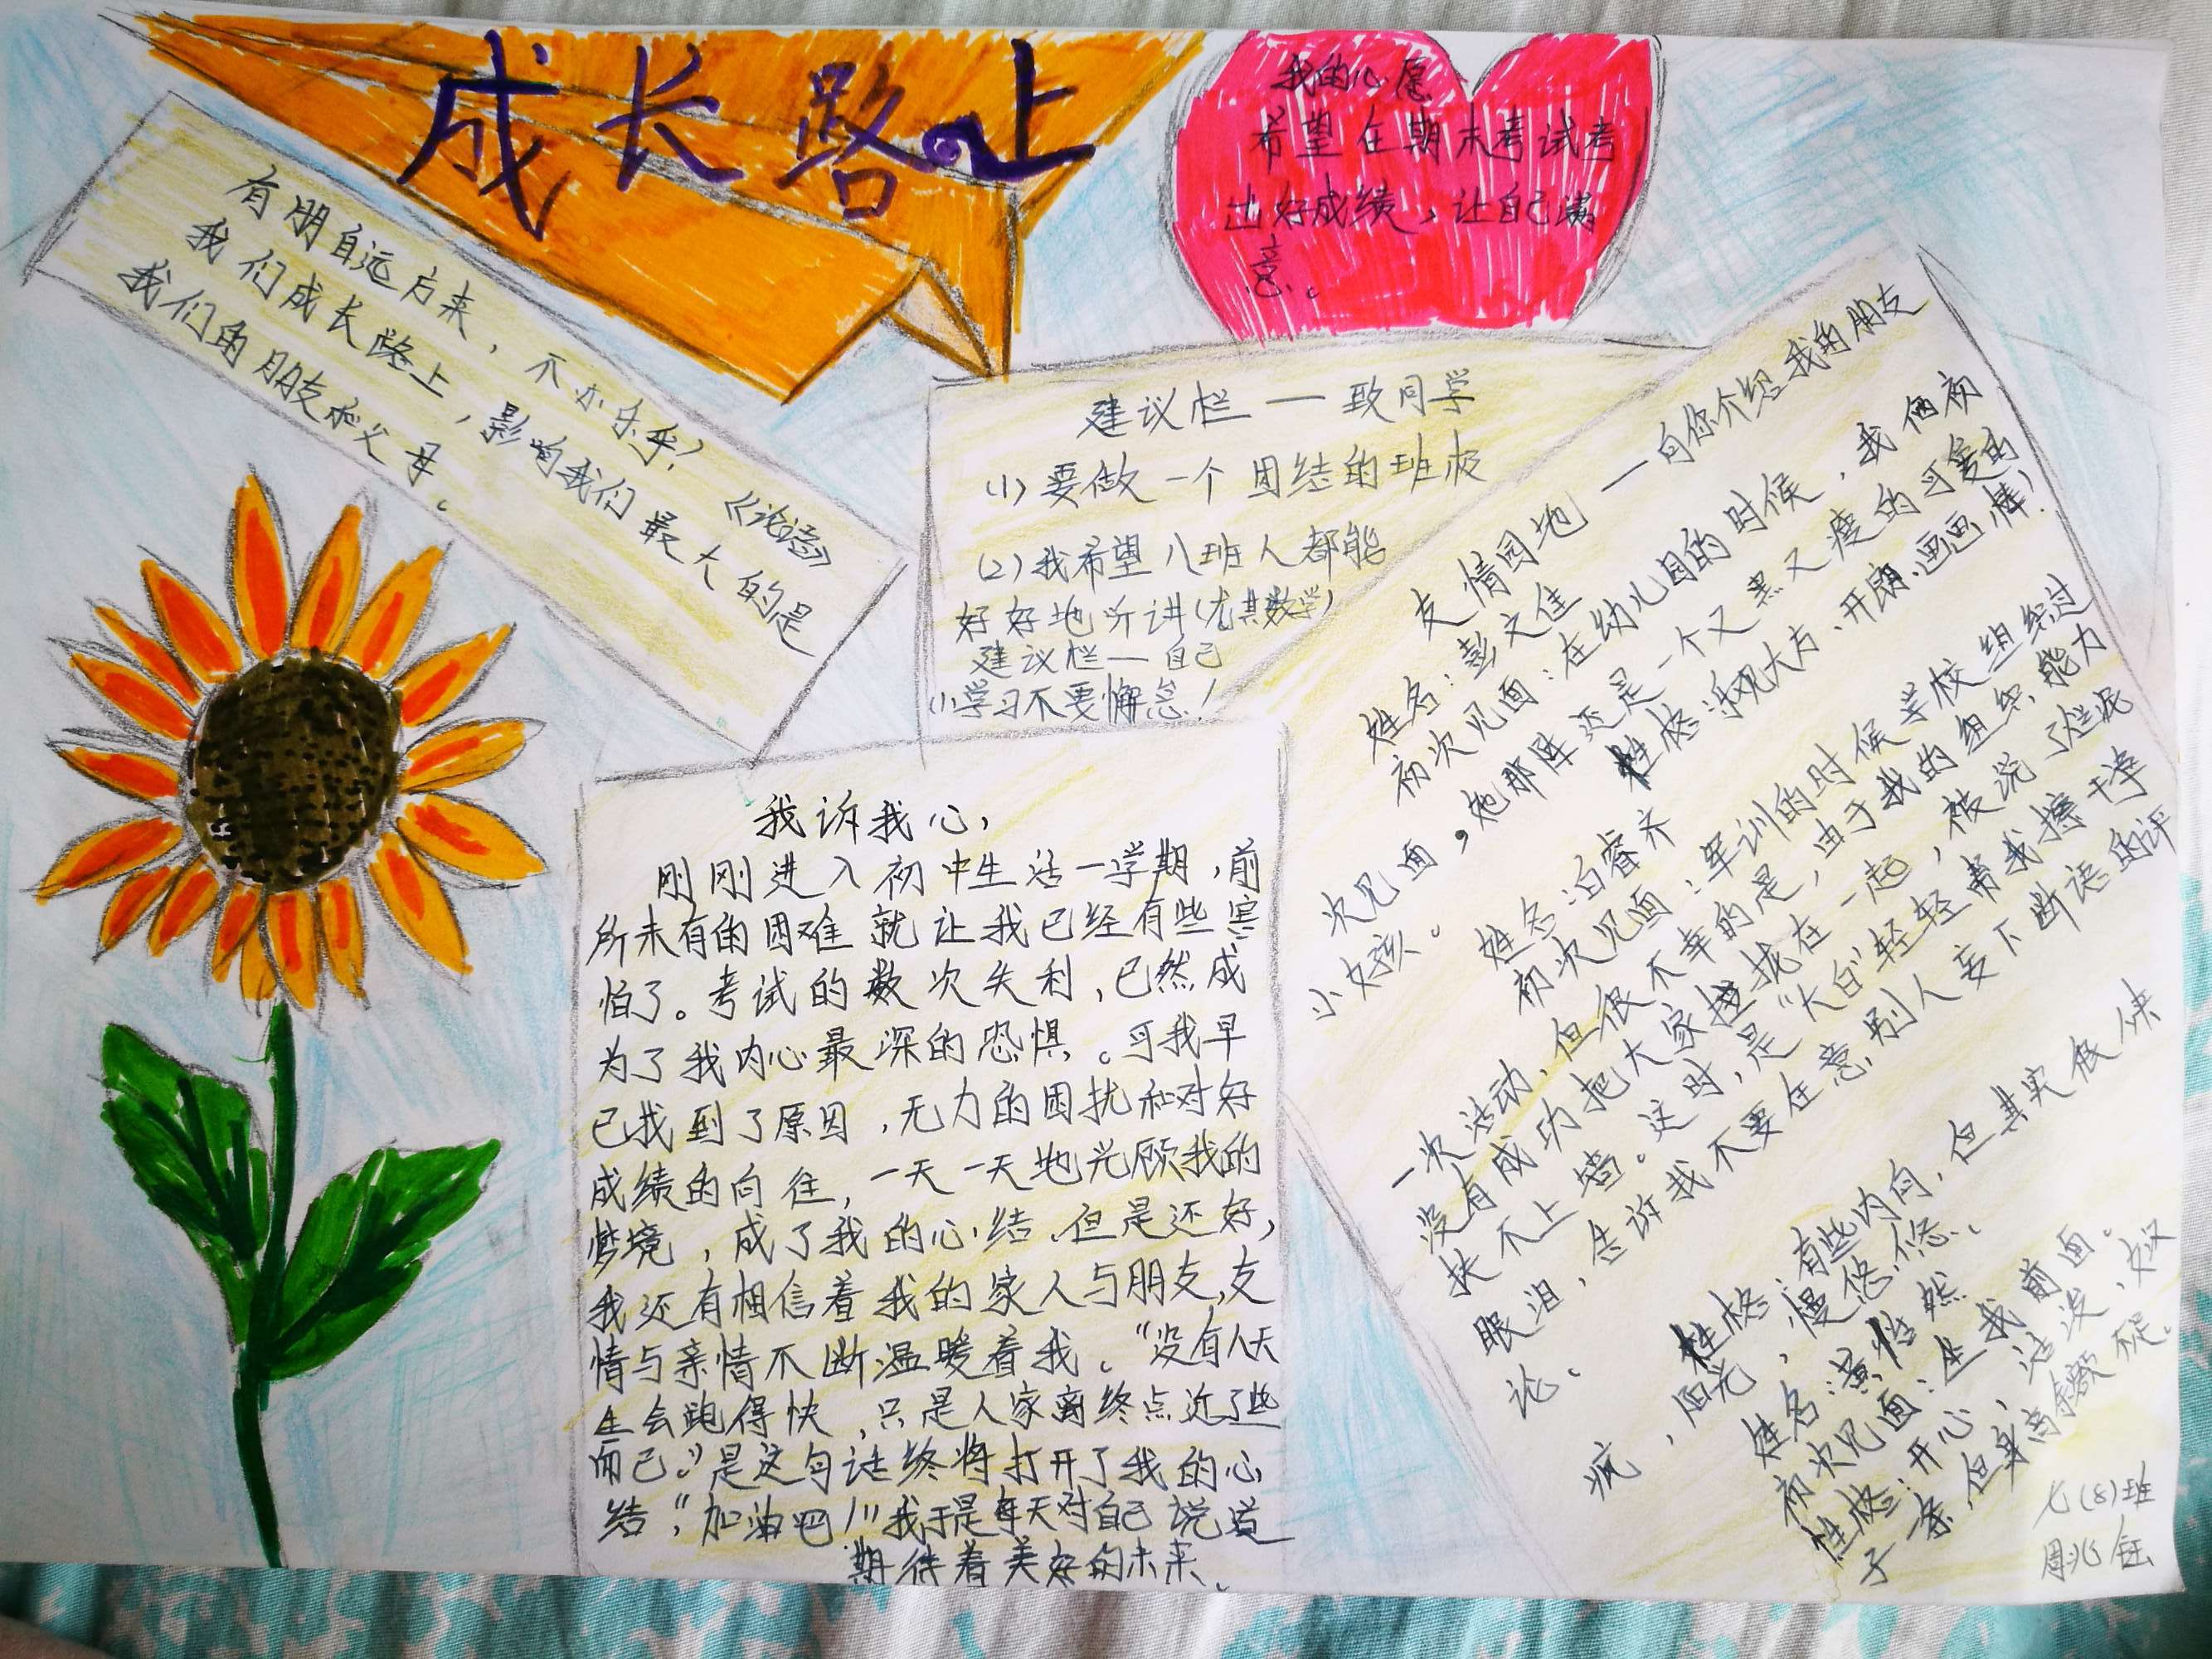 成长路上
我的心愿
希望在期末考试考
出好成绩，让自己满
意。
有朋自远方来，不亦乐乎？《论语》
我们成长路上，影响我们最大的是
我们的朋友和父母。
建议栏——致同学
(1)要做一个团结的班级
(2)我希望八班人都能
好好地听讲(尤其数学)
建议栏——自己
(1)学习不要懈怠！
我诉我心，
刚刚进入初中生活一学期，前
所未有的困难就让我已经有些害
怕了。考试的数次失利，已然成
为了我内心最深的恐惧。可我早
已找到了原因，无力的困扰和对好
成绩的向往，一天一天地光顾我的
梦境，成了我的心结。但是还好，
我还有相信着我的家人与朋友，友
情与亲情不断温暖着我。“没有人天
生会跑得快，只是人家离终点近了些
而已。”是这句话终将打开了我的心
结，“加油吧！”我于是每天对自己说道
期待着美好的未来。
友情园地——向你介绍我的朋友
姓名：彭文佳
初次见面：在幼儿园的时候，我俩初
次见面，她那阵还是一个又黑又瘦的可爱的
小女孩。 性格：乐观大方、开朗、画画棒！
姓名：泊睿齐
初次见面：军训的时候学校组织过
一次活动，但很不幸的是，由于我的组织能力
没有成功把大家拢在一起，被说了烂泥
扶不上墙。这时，是“大白”轻轻帮我擦干净
眼泪，告诉我不要在意别人妄下断语的评
论。
性格：有些内向，但其实很快
疯，阳光，慢悠悠。
姓名：怡然
初次见面：坐我前面。
性格：开心，活泼，女汉
子一条，但身高余额不足。
七(8)班
周兆钰